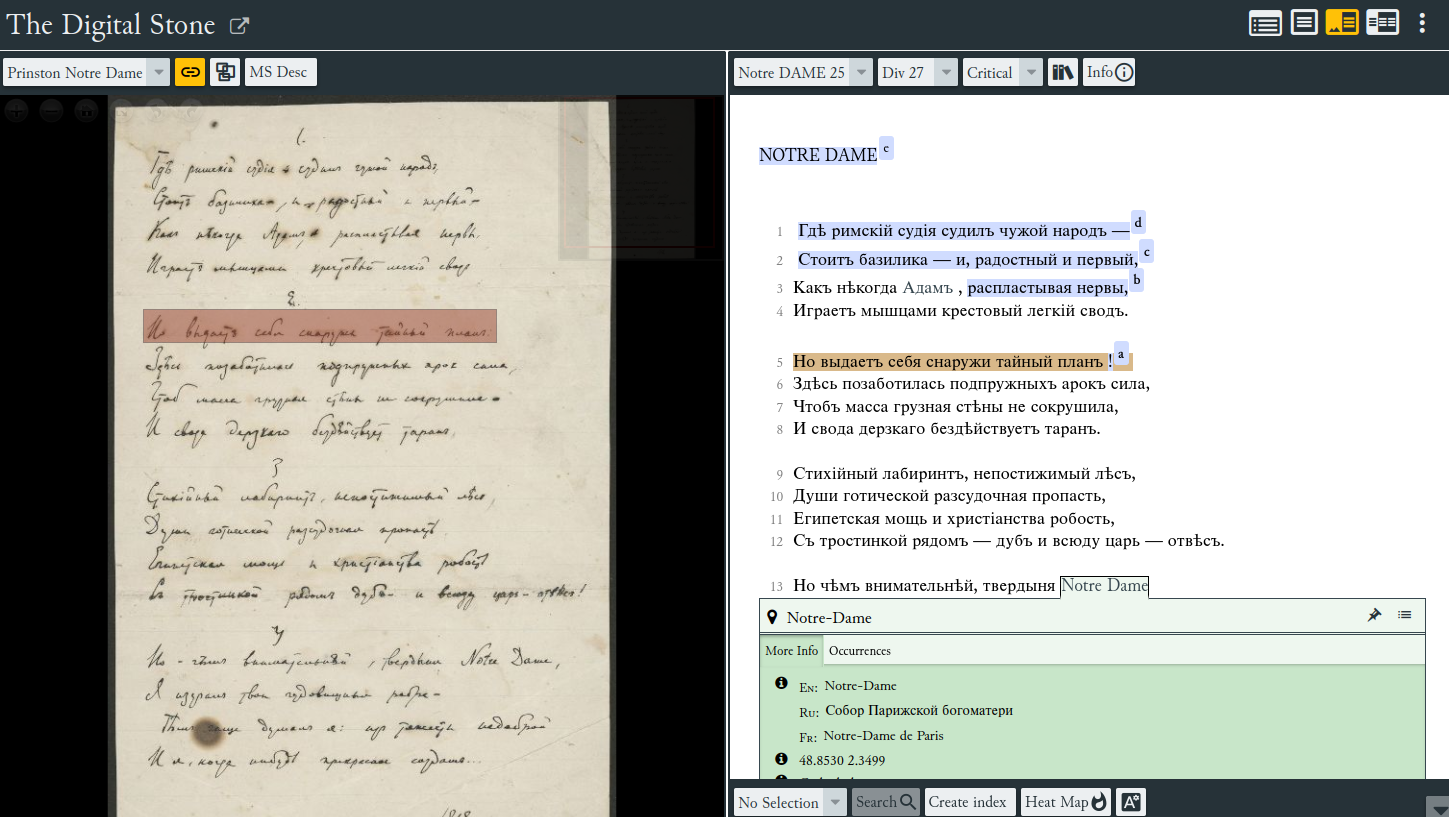 The Digital Stone
Prinston Notre Dame
MS Desc
1.
Гдѣ римскій судія судилъ чужой народъ,
Стоитъ базилика —, и радостный и первый —
Какъ нѣкогда Адамъ, распластывая нервы,
Играетъ мышцами крестовый легкій сводъ
2.
Но выдаетъ себя снаружи тайный планъ
Здѣсь позаботилась подпружныхъ арокъ сила,
Чтоб масса грузная стѣны не сокрушила
И свода дерзкаго бездѣйствуетъ таранъ.
3
Стихійный лабиринтъ, непостижимый лѣсъ,
Души готической разсудочная пропасть
Египетская мощь и христіанства робость
Съ тростинкой рядомъ дубъ — и всюду царь — отвѣсъ!
4
Но — чѣмъ внимательнѣй, твердыня Notre Dame,
Я изучалъ твои чудовищныя ребра —
Тѣмъ чаще думалъ я: изъ тяжести недоброй
И я, когда нибудь прекрасное создамъ...
Notre DAME 25
Div 27
Critical
Info
NOTRE DAME c
1 Гдѣ римскій судія судилъ чужой народъ — d
2 Стоитъ базилика — и, радостный и первый, c
3 Какъ нѣкогда Адамъ , распластывая нервы, b
4 Играетъ мышцами крестовый легкій сводъ.
5 Но выдаетъ себя снаружи тайный планъ ! a
6 Здѣсь позаботилась подпружныхъ арокъ сила,
7 Чтобъ масса грузная стѣны не сокрушила,
8 И свода дерзкаго бездѣйствуетъ таранъ.
9 Стихійный лабиринтъ, непостижимый лѣсъ,
10 Души готической разсудочная пропасть,
11 Египетская мощь и христіанства робость,
12 Съ тростинкой рядомъ — дубъ и всюду царь — отвѣсъ.
13 Но чѣмъ внимательнѣй, твердыня Notre Dame
Notre-Dame
More Info
Occurrences
En: Notre-Dame
Ru: Собор Парижской богоматери
Fr: Notre-Dame de Paris
48.8530 2.3499
No Selection
Search
Create index
Heat Map